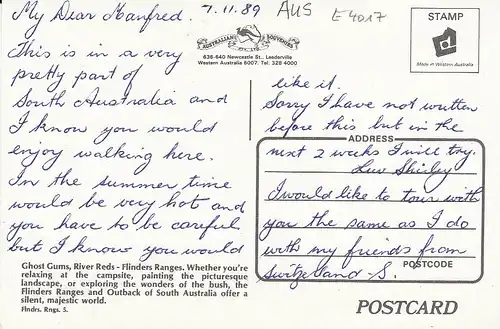 My Dear Manfred.
7.11.89
AUS
E4017
STAMP
Made in Western Australia
AUSTRALIAN SOUVENIRS
636-640 Newcastle St., Leederville
Western Australia 6007. Tel: 328 4000
This is in a very
pretty part of
South Australia and
I know you would
enjoy walking here.
In the summer time
would be very hot and
you have to be careful
but I know you would
like it.
Sorry I have not written
before this but in the
ADDRESS
next 2 weeks I will try.
Luv Shirley
I would like to tour with
you the same as I do
with my friends from
Switzerland -S.
POSTCODE
Ghost Gums, River Reds - Flinders Ranges. Whether you're
relaxing at the campsite, painting the picturesque
landscape, or exploring the wonders of the bush, the
Flinders Ranges and Outback of South Australia offer a
silent, majestic world.
Flndrs. Rngs. 5.
POSTCARD